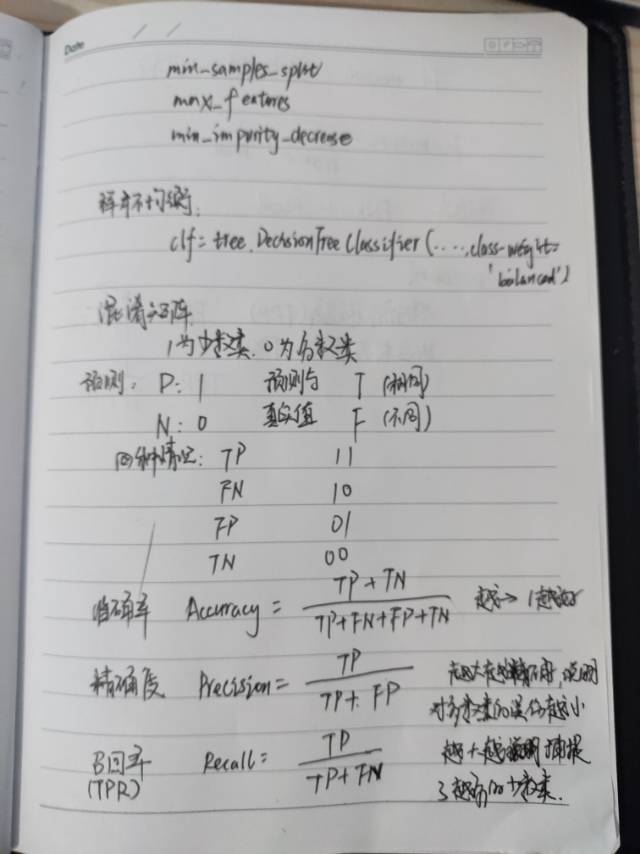 Date
min_samples_split
max_features
min_impurity_decrease
样本不均衡:
clf = tree.DecisionTreeClassifier(....., class_weight=
'balanced')
混淆矩阵
1为少数类, 0为多数类
预测: P: 1 预测与 T (相同)
N: 0 真实值 F (不同)
四种情况: TP 11
FN 10
FP 01
TN 00
准确率 Accuracy = TP + TN / TP+FN+FP+TN 越→1越好
精确度 Precision = TP / TP + FP 越大越精确, 说明
对多数类的误伤越小
召回率 Recall = TP / TP+FN 越大越说明捕捉
(TPR) 了越多的少数类.